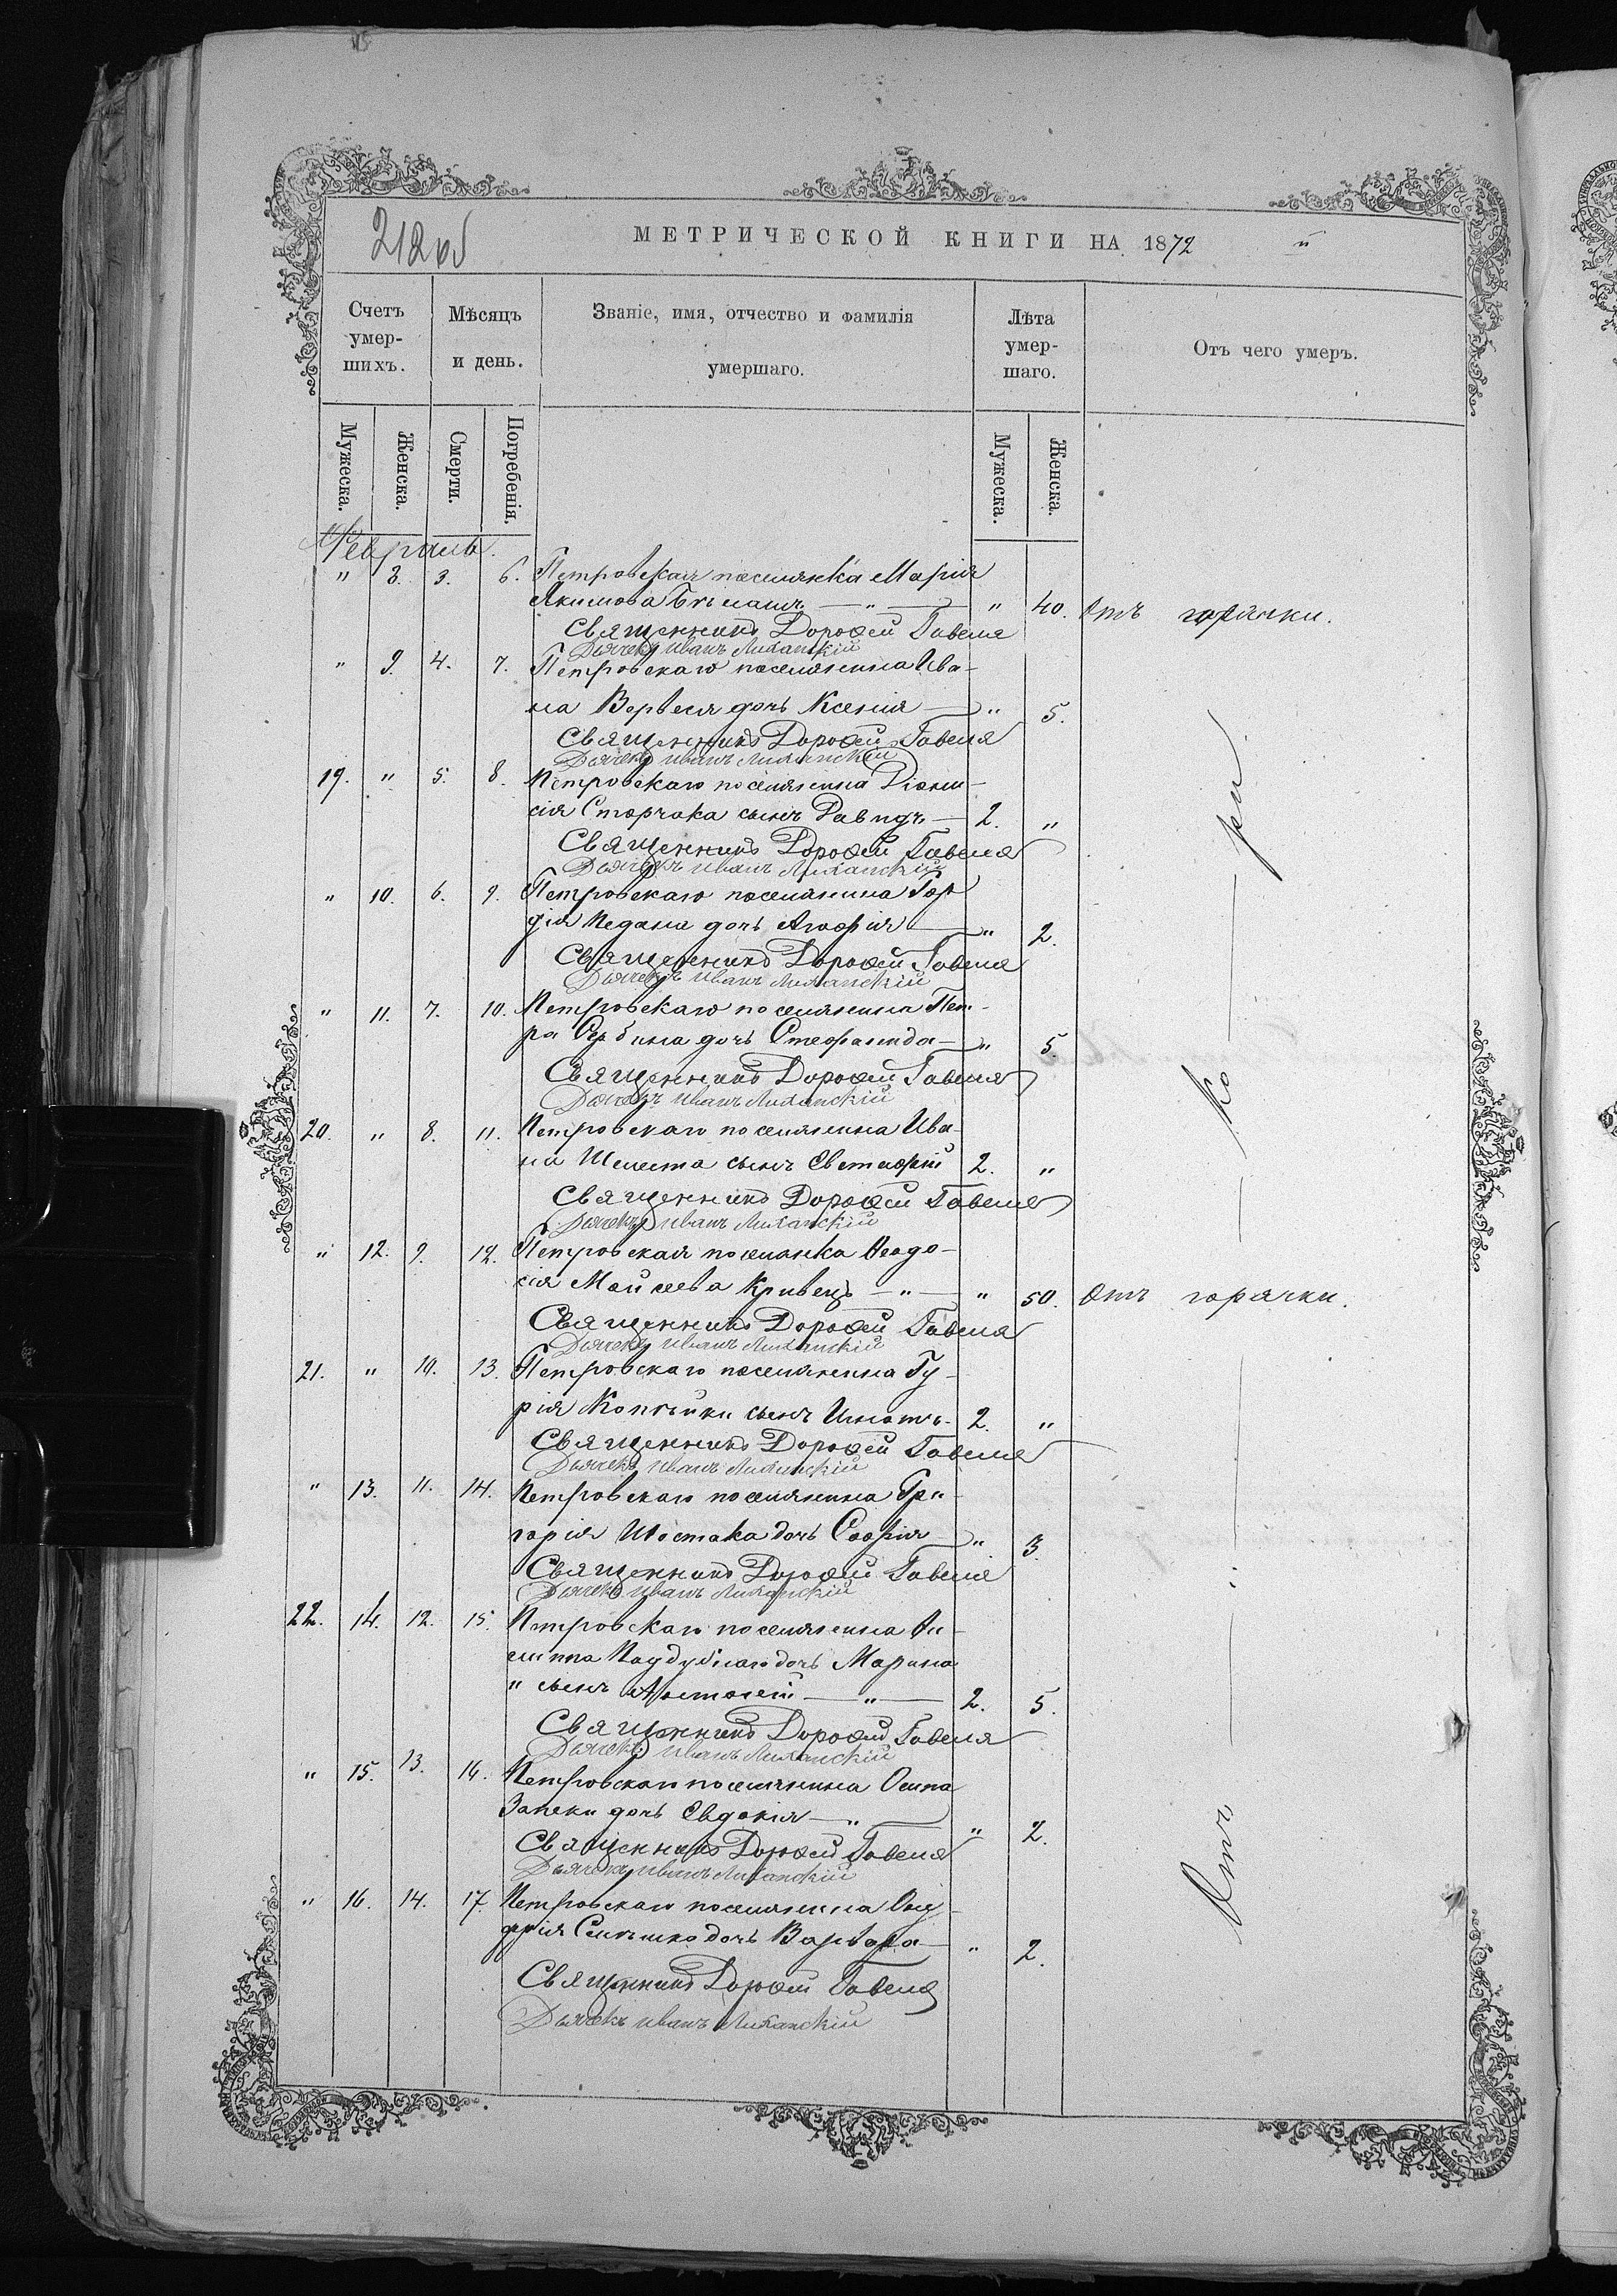 212 об
МЕТРИЧЕСКОЙ КНИГИ НА 1872
Счетъ умер- шихъ.
Мѣсяцъ и день.
Званіе, имя, отчество и фамилія умершаго.
Лѣта умер- шаго.
Отъ чего умеръ.
Мужеска.
Женска.
Смерти.
Погребенія.
Мужеска.
Женска.
Февраль.
" 8. 3. 6. Петровская поселянка Марія
Якимова " " 40. Отъ горячки.
Священникъ Дорофей Гавеля
Дьячекъ Иванъ Лиханскій
" 9. 4. 7. Петровскаго поселянина Ива-
на Вервеся дочь Ксенія " 5.
Священникъ Дорофей Гавеля
Дьячекъ Иванъ Лиханскій
19. " 5. 8. Петровскаго поселянина Діони-
сія Сторчака сынъ Давидъ 2. "
Священникъ Дорофей Гавеля
Дьячекъ Иванъ Лиханскій
" 10. 6. 9. Петровскаго поселянина Гор
дія Педана дочь Агафія " 2.
Священникъ Дорофей Гавеля
Дьячекъ Иванъ Лиханскій
" 11. 7. 10. Петровскаго поселянина Пет-
ра Сербина дочь Стефанида " 5.
Священникъ Дорофей Гавеля
Дьячекъ Иванъ Лиханскій
20. " 8. 11. Петровскаго поселянина Ива-
на Шелеста сынъ Евстафій 2. "
Священникъ Дорофей Гавеля
Дьячекъ Иванъ Лиханскій
" 12. 9. 12. Петровская поселянка Феодо-
сія Мойсеева Кривецъ " " 50. Отъ горячки.
Священникъ Дорофей Гавеля
Дьячекъ Иванъ Лиханскій
21. " 10. 13. Петровскаго поселянина Гу-
рія Копѣйки сынъ Игнатъ 2. "
Священникъ Дорофей Гавеля
Дьячекъ Иванъ Лиханскій
" 13. 11. 14. Петровскаго поселянина Гри-
горія Шостака дочь Софія " 3.
Священникъ Дорофей Гавеля
Дьячекъ Иванъ Лиханскій
22. 14. 12. 15. Петровскаго поселянина Фи-
липпа дочь Марина
" сынъ " 2. 5.
Священникъ Дорофей Гавеля
Дьячекъ Иванъ Лиханскій
" 15. 13. 16. Петровскаго поселянина Осипа
Запеки дочь Евдокія " " 2.
Священникъ Дорофей Гавеля
Дьячекъ Иванъ Лиханскій
" 16. 14. 17. Петровскаго поселянина Ону-
фрія дочь Варвара " 2.
Священникъ Дорофей Гавеля
Дьячекъ Иванъ Лиханскій
Отъ ко ри